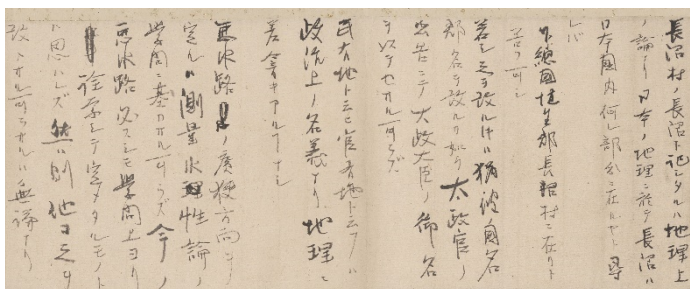 長沼村ノ長沼ト記シタルハ地理上
ノ論ナリ日本ノ地理ニ於テ長沼ハ
日本国内何レノ部分ニ在ルヤト尋
レバ
下總國埴生郡長沼村ニ在リト
答フ可シ
若シ之ヲ改ルトキハ猶彼國名
郡名ヲ改ルガ如ク太政官ノ
公告ニテ大政大臣ノ御名
ヲ以テセザル可ラズ
民有地ト云ヒ官有地ト云フハ
政治上ノ名義ナリ地理ニ
差響キアルナシ
悪水路ノ廣狭方向等ヲ
定ルハ測量水理性論ノ
學問ニ基カザル可ラズ今ノ
悪水路必スシモ學問上ヨリ
論究シテ定メタルモノト
思ハレズ然ハ則他日之ヲ
改メザル可ラザルハ無論ナリ